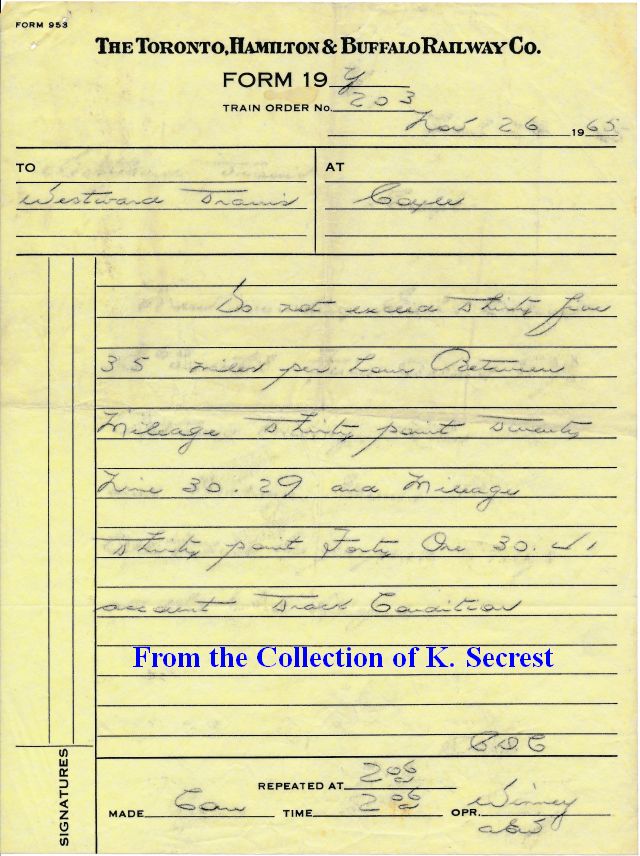 FORM 953
THE TORONTO, HAMILTON & BUFFALO RAILWAY CO.
FORM 19 Y
TRAIN ORDER No. 203
Nov 26 1965
TO
AT
Westward Trains
Coyle
Do not exceed thirty five
35 miles per hour Between
Mileage thirty point Twenty
Nine 30.29 and Mileage
thirty point Forty One 30.41
account Track Condition
From the Collection of K. Secrest
REPEATED AT 2 06
MADE Com TIME 2 06 OPR. Winney
SIGNATURES